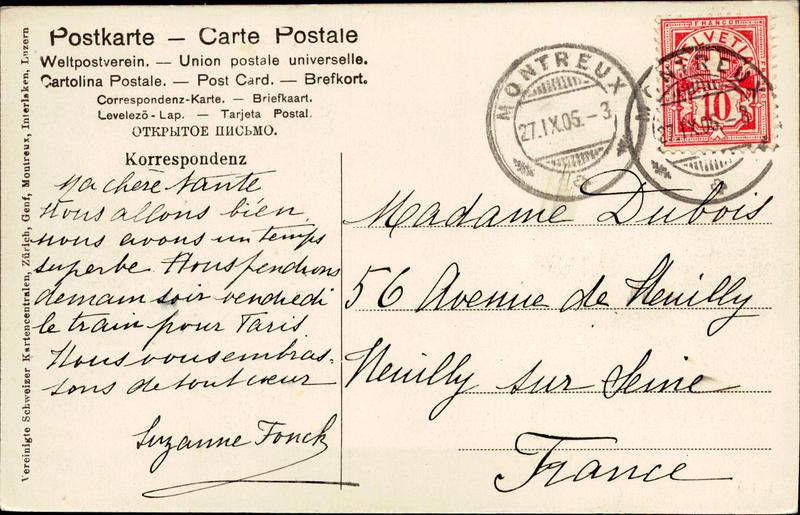 Postkarte – Carte Postale
Weltpostverein. — Union postale universelle.
Cartolina Postale. — Post Card. — Brefkort.
Correspondenz-Karte. — Briefkaart.
Levelező-Lap. — Tarjeta Postal.
ОТКРЫТОЕ ПИСЬМО.
Korrespondenz
Ma chère tante
Nous allons bien,
nous avons un temps
superbe Nous prendrons
demain soir vendredi
le train pour Paris
Nous vous embras-
sons de tout cœur
Suzanne Fonck
Madame Dubois
56 Avenue de Neuilly
Neuilly sur Seine
France
FRANCO
HELVETIA
10
MONTREUX
27.IX.06.-3
MONTREUX
27.IX.06.-3
Vereinigte Schweizer Kartencentralen, Zürich, Genf, Montreux, Interlaken, Luzern